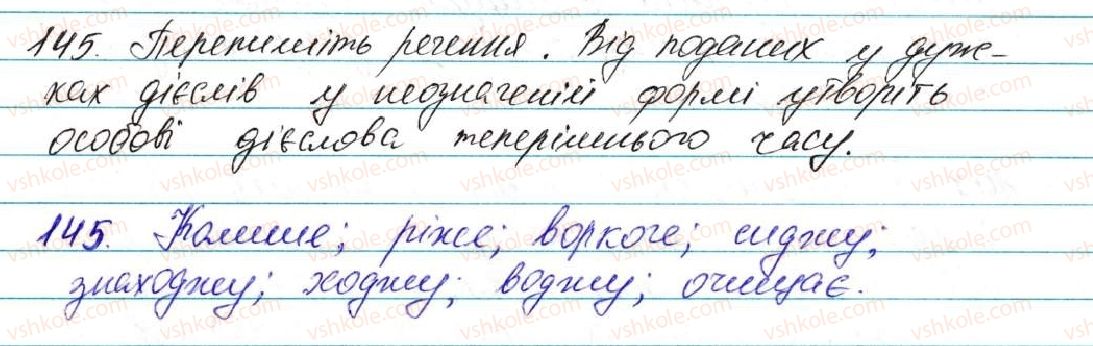 145. Перепишіть речення. Від поданих у дуж-
ках дієслів у неозначеній формі утворіть
особові дієслова теперішнього часу.
145. Колише; ріже; воркоче; сиджу;
знаходжу; ходжу; воджу; очищає.